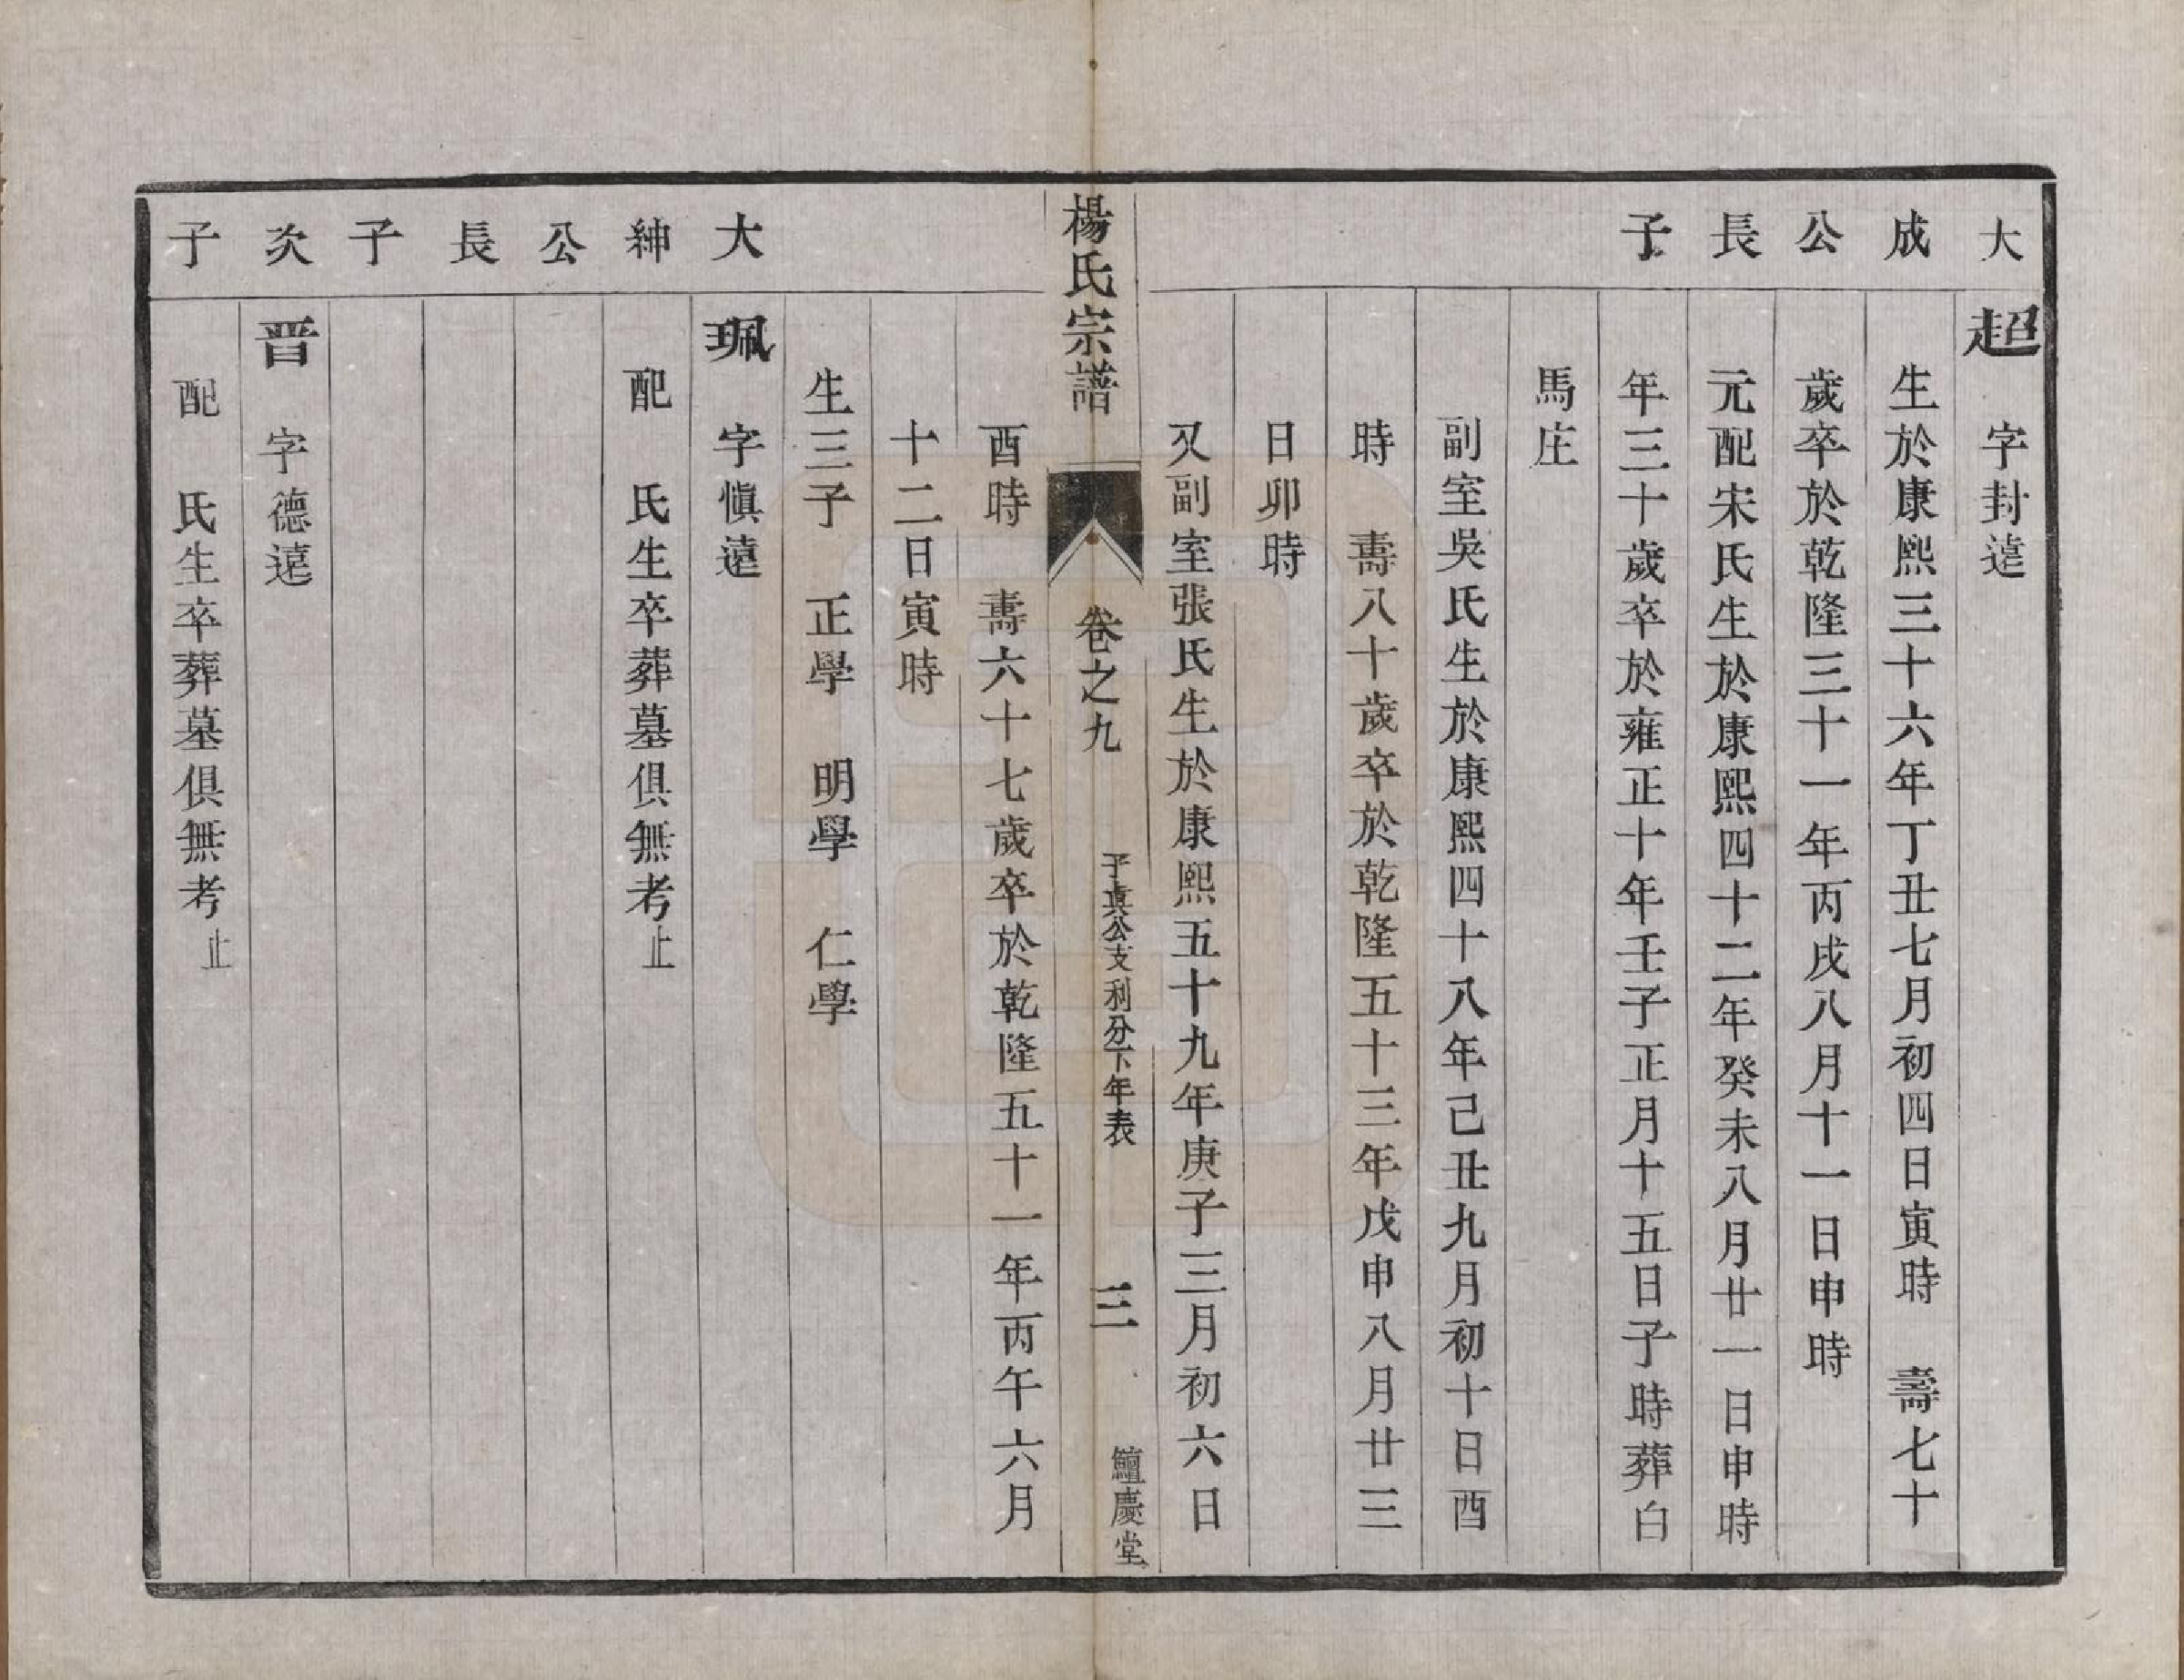 大成公長子
超　字封遠
生於康熙三十六年丁丑七月初四日寅時　壽七十
歲卒於乾隆三十一年丙戌八月十一日申時
元配宋氏生於康熙四十二年癸未八月廿一日申時
年三十歲卒於雍正十年壬子正月十五日子時葬白
馬庄
副室吳氏生於康熙四十八年己丑九月初十日酉
時　壽八十歲卒於乾隆五十三年戊申八月廿三
日卯時
又副室張氏生於康熙五十九年庚子三月初六日
楊氏宗譜
卷之九
子真公支利分下年表
三
鱣慶堂
酉時　壽六十七歲卒於乾隆五十一年丙午六月
十二日寅時
生三子　正學　明學　仁學
大紳公長子
珮　字慎遠
配　氏生卒葬墓俱無考止
次子
晋　字德遠
配　氏生卒葬墓俱無考止